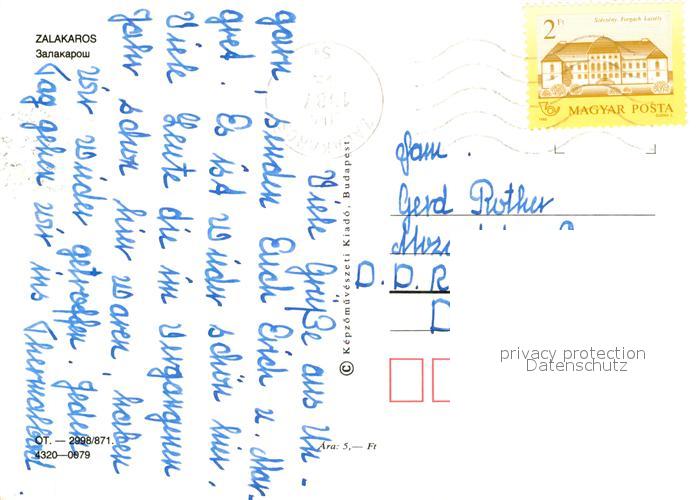 ZALAKAROS
Залакарош
Viele Grüße aus Un-
garn, senden Euch Erich u. Mar-
gret. Es ist wieder schön hier.
Viele Leute die im Vergangenen
Jahr schon hier waren, haben
wir wieder getroffen. Jeden
Tag gehen wir ins Thermalbad.
OT. — 2998/871.
4320—0079
Ára: 5,— Ft
© Képzőművészeti Kiadó, Budapest
ZALAKAROS
2 Ft
Szécsény, Forgách kastély
MAGYAR POSTA
Fam.
Gerd Rother
D. D. R
privacy protection
Datenschutz